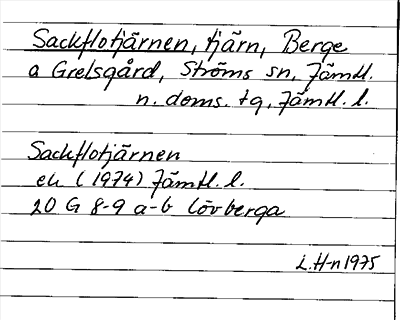 Sackflotjärnen, tjärn, Berge
o Grelsgård, Ströms sn, Jämtl.
n. doms. tg, Jämtl. l.
Sackflotjärnen
ek (1974) Jämtl. l.
20 G 8-9 a-b Lövberga
L. H-n 1975